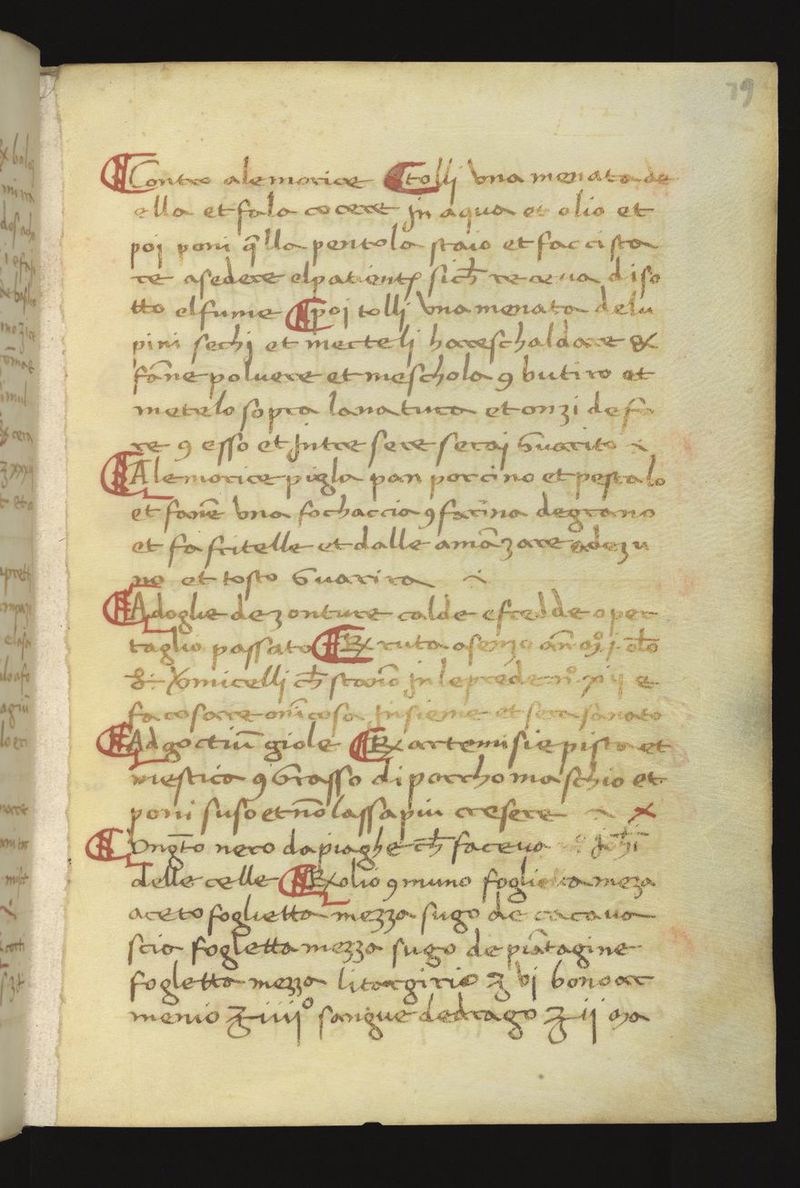 79
Contro alemorice tolli una menata de
ella et fala cocere in aqua et olio et
poi poni q̄lla pentola staio et facci sta
re asedere el patiente sich̄ receva diso
tto el fume poi tolli una menata delu
pini sechi et metteli ha reschaldare &
fāne polvere et meschola 9 butiro et
metelo sopra la natura et onzi de fa
re 9 esso et in tre sere serai guarito
A le morice pigla pan porcino et pestalo
et fane una fochaccia 9 farina de grano
et fa fritelle et dalle amāzare adezu
no et tosto guarira
A doglie de zonture calde e fredde o per
taglio passato ℞ ruta asenzo
vermicelli ch̄ stanno in le prede nº xii e
fa cosare onī cosa insieme et sera sanato
Ad goctiu᷃ giole ℞ artemisie pista et
mestica 9 grasso di porcho maschio et
poni suso et nō lassa piu cresere
Ongto nero da piaghe ch̄ faceva
delle celle ℞ olio 9muno foglietta meza
aceto foglietta mezza sugo de cacava
scia fogletta mezza sugo de piātagine
fogletta mezza litargirio ℥ vi bono ar
menio ℥ iiiiº sangue de drago ℥ ii ma